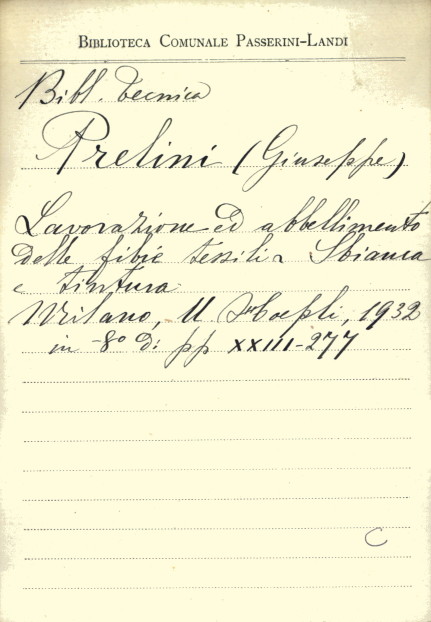 BIBLIOTECA COMUNALE PASSERINI-LANDI
Bibl. Tecnica
Prelini (Giuseppe)
Lavorazione ed abbellimento
delle fibre tessili Sbianca
e tintura
Milano, U Hoepli, 1932
in -8º d: pp XXIII-277
C